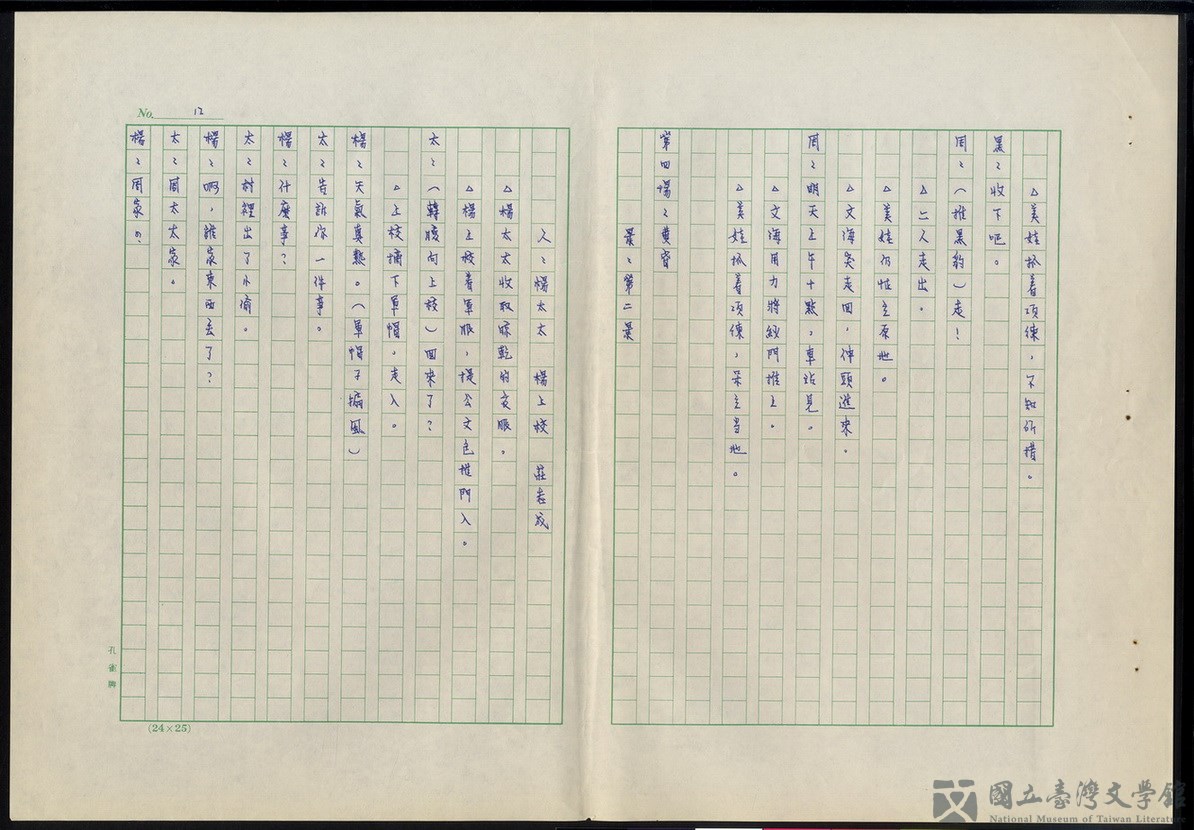 △美娃抓著項鍊，不知所措。
黑：收下吧。
周：（推黑豹）走！
△二人走出。
△美娃仍怔立原地。
△文海突走回，伸頭進來。
周：明天上午十點，車站見。
△文海用力將紗門推上。
△美娃抓着項鍊，呆立當地。
第四場：黃昏
景：第二景
人：楊太太 楊上校 莊志成
△楊太太收取晾乾的衣服。
△楊上校着軍服，提公文包推門入。
太：（轉臉向上校）回來了？
△上校摘下軍帽。走入。
楊：天氣真熱。（軍帽子搧風）
太：告訴你一件事。
楊：什麼事？
太：村裡出了小偷。
楊：啊，誰家東西丟了？
太：周太太家。
楊：周家？
No. 12
孔雀牌
(24×25)
國立臺灣文學館
National Museum of Taiwan Literature